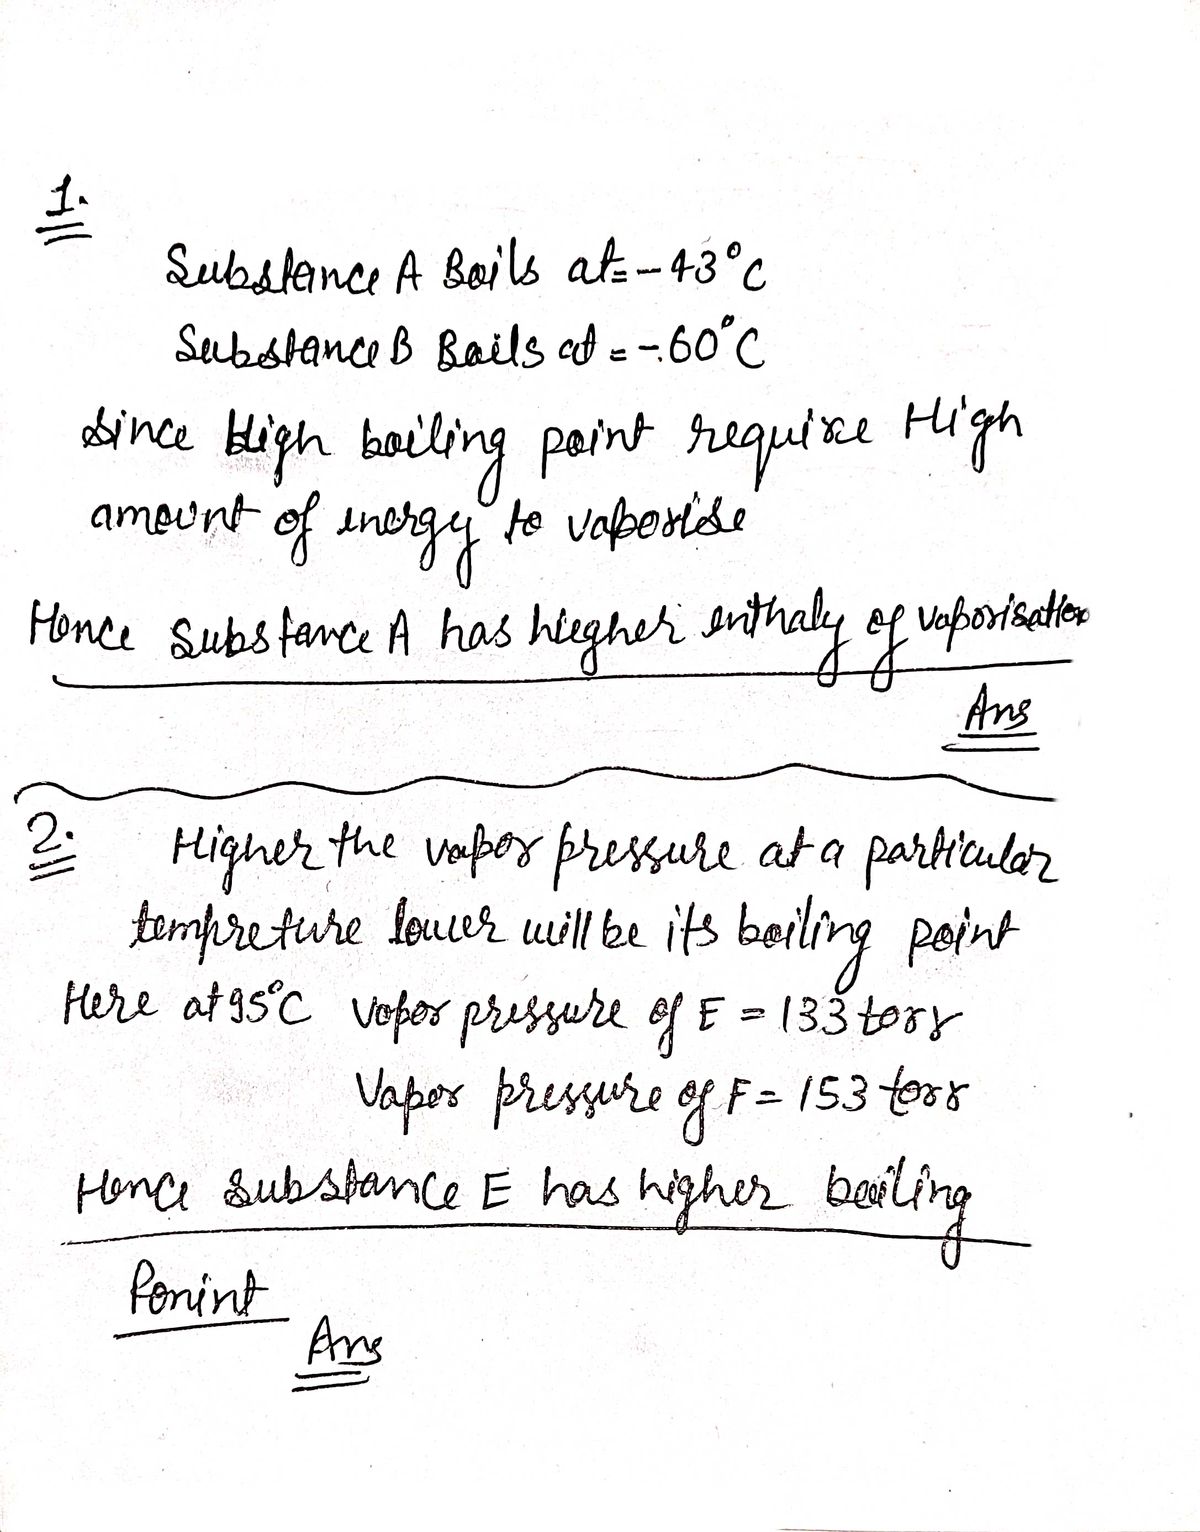 1.
Substance A Boils at = -43°C
Substance B Boils at = -60°C
Since High boiling point require High
amount of energy to vaporise
Hence Substance A has higher enthaly of vaporisation
Ans
2. Higher the vapor pressure at a particular
tempreture lower will be its boiling point
Here at 95°C Vapor pressure of E = 133 torr
Vapor pressure of F = 153 torr
Hence substance E has higher boiling
Ponint
Ans